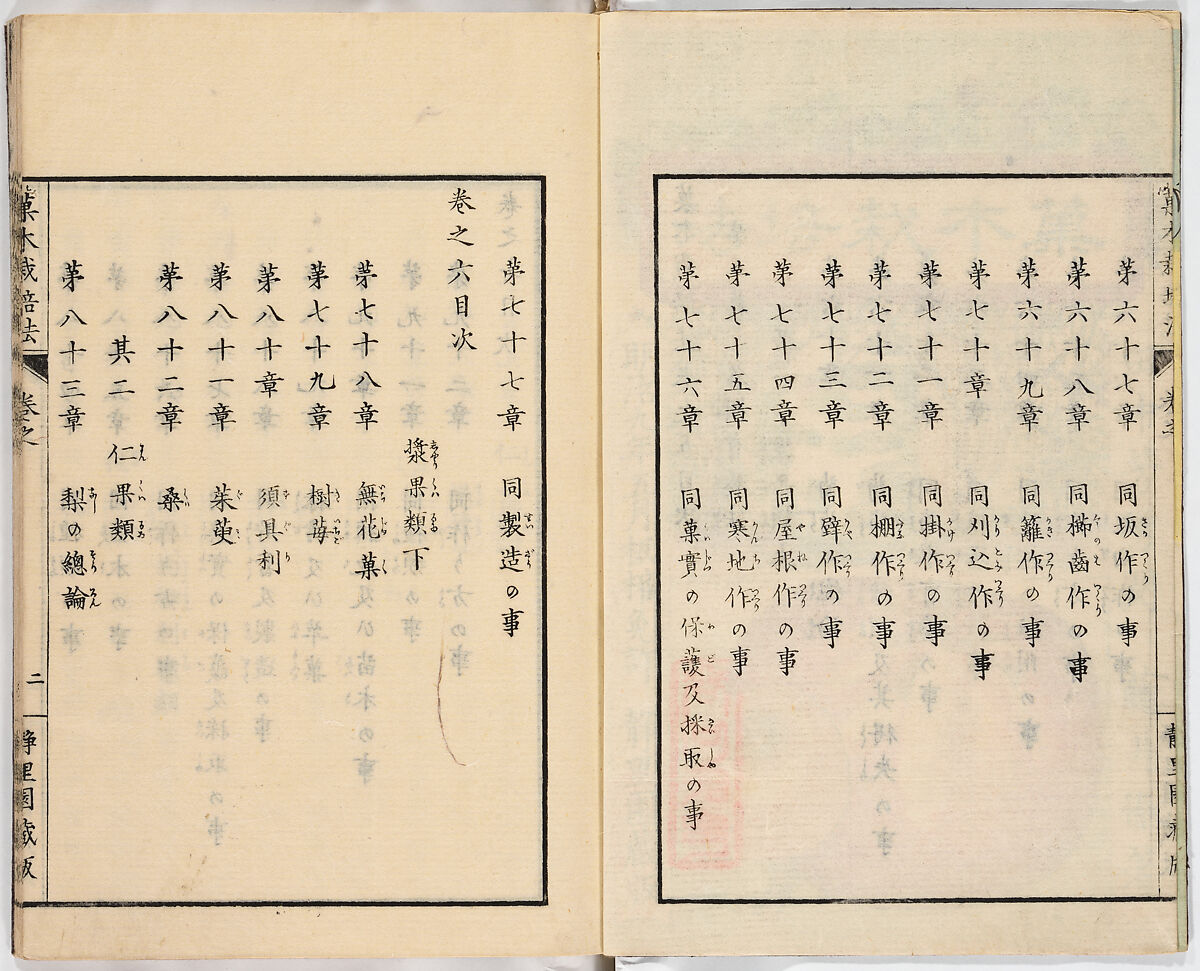 第六十七章 同坂作の事
第六十八章 同櫛齒作の事
第六十九章 同籬作の事
第七十章 同刈込作の事
第七十一章 同掛作の事
第七十二章 同棚作の事
第七十三章 同壁作の事
第七十四章 同屋根作の事
第七十五章 同寒地作の事
第七十六章 同菓實の保護及採取の事
第七十七章 同製造の事
巻之六目次
漿果類下
第七十八章 無花菓
第七十九章 樹莓
第八十章 須具利
第八十一章 茱萸
第八十二章 桑
其二 仁果類
第八十三章 梨の總論
菓木栽培法 巻之 二 静里園蔵版